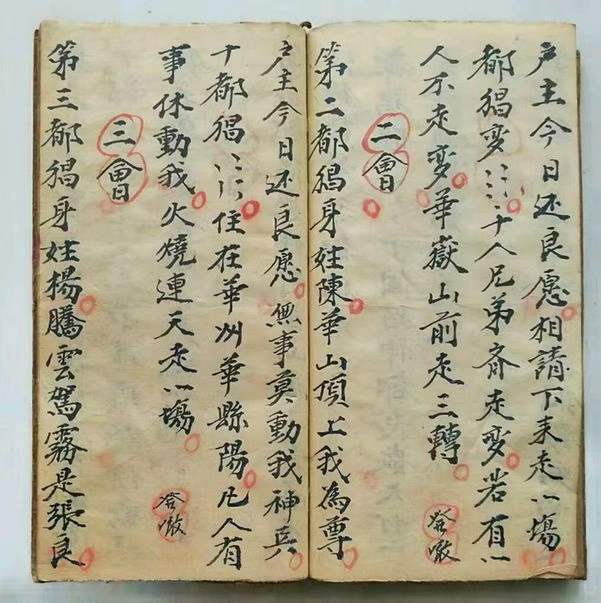 户主今日还良愿相請下来走一場
都猖変⋮⋮十八兄弟斉走変若有一
人不走変華嶽山前走三轉
二會
第二都猖身姓陳華山頂上我為尊
户主今日还良愿無事莫動我神兵
十都猖⋮⋮住在華州華縣陽凡人有
事休動我火燒連天走一場
三會
第三都猖身姓楊騰雲駕霧是張良